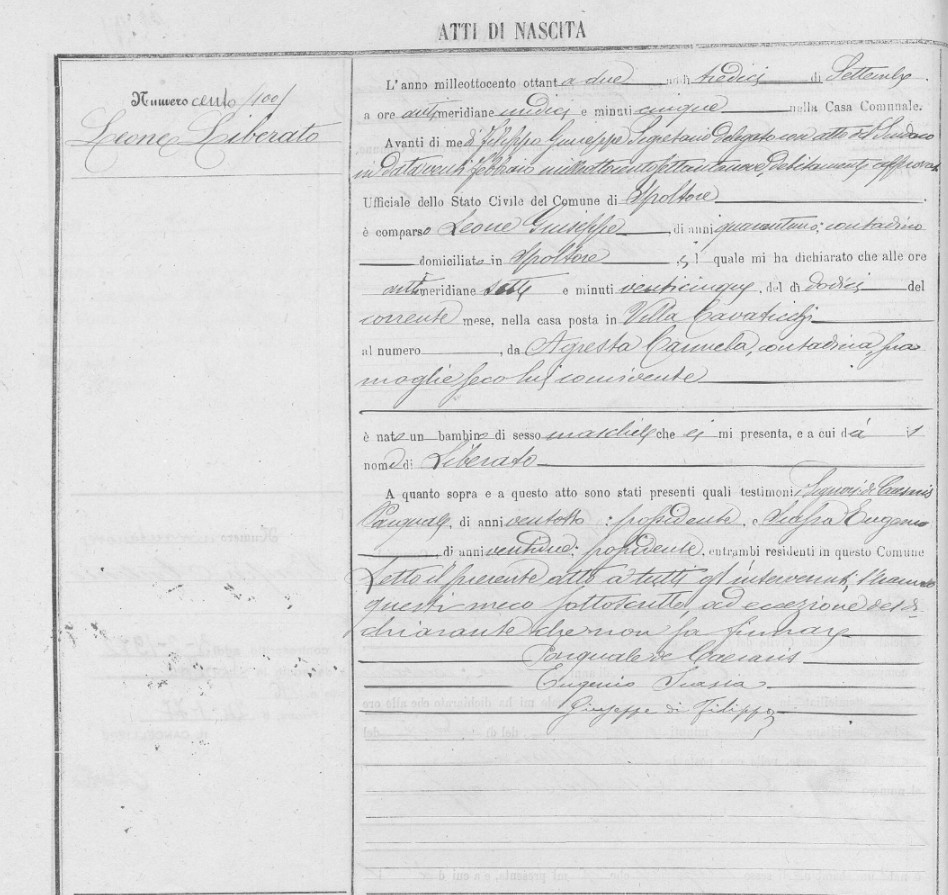 ATTI DI NASCITA
Numero cento /100/
Leone Liberato
L'anno milleottocento ottanta due, addì tredici di Settembre
a ore antimeridiane undici e minuti cinque, nella Casa Comunale.
Avanti di me di Filippo Giuseppe Segretario delegato con atto del Sindaco
in data venti febbraio milleottocentosettantanove, debitamente approvato
Ufficiale dello Stato Civile del Comune di Spoltore
è comparso Leone Giuseppe, di anni quarantuno; contadino
domiciliato in Spoltore, il quale mi ha dichiarato che alle ore
antimeridiane sette e minuti venticinque, del dì dodici del
corrente mese, nella casa posta in Villa Cavaticchi
al numero, da Agresta Carmela, contadina, sua
moglie seco lui convivente
è nato un bambino di sesso maschile che ei mi presenta, e a cui dà il
nome di Liberato
A quanto sopra e a questo atto sono stati presenti quali testimoni Signori de Caesaris
Pasquale, di anni ventotto; possidente, e Scassa Eugenio
, di anni ventidue; possidente, entrambi residenti in questo Comune
Letto il presente atto a tutti gl'intervenuti, l'hanno
questi meco sottoscritto, ad eccezione del di-
chiarante che non sa firmare
Pasquale de Caesaris
Eugenio
Giuseppe di Filippo